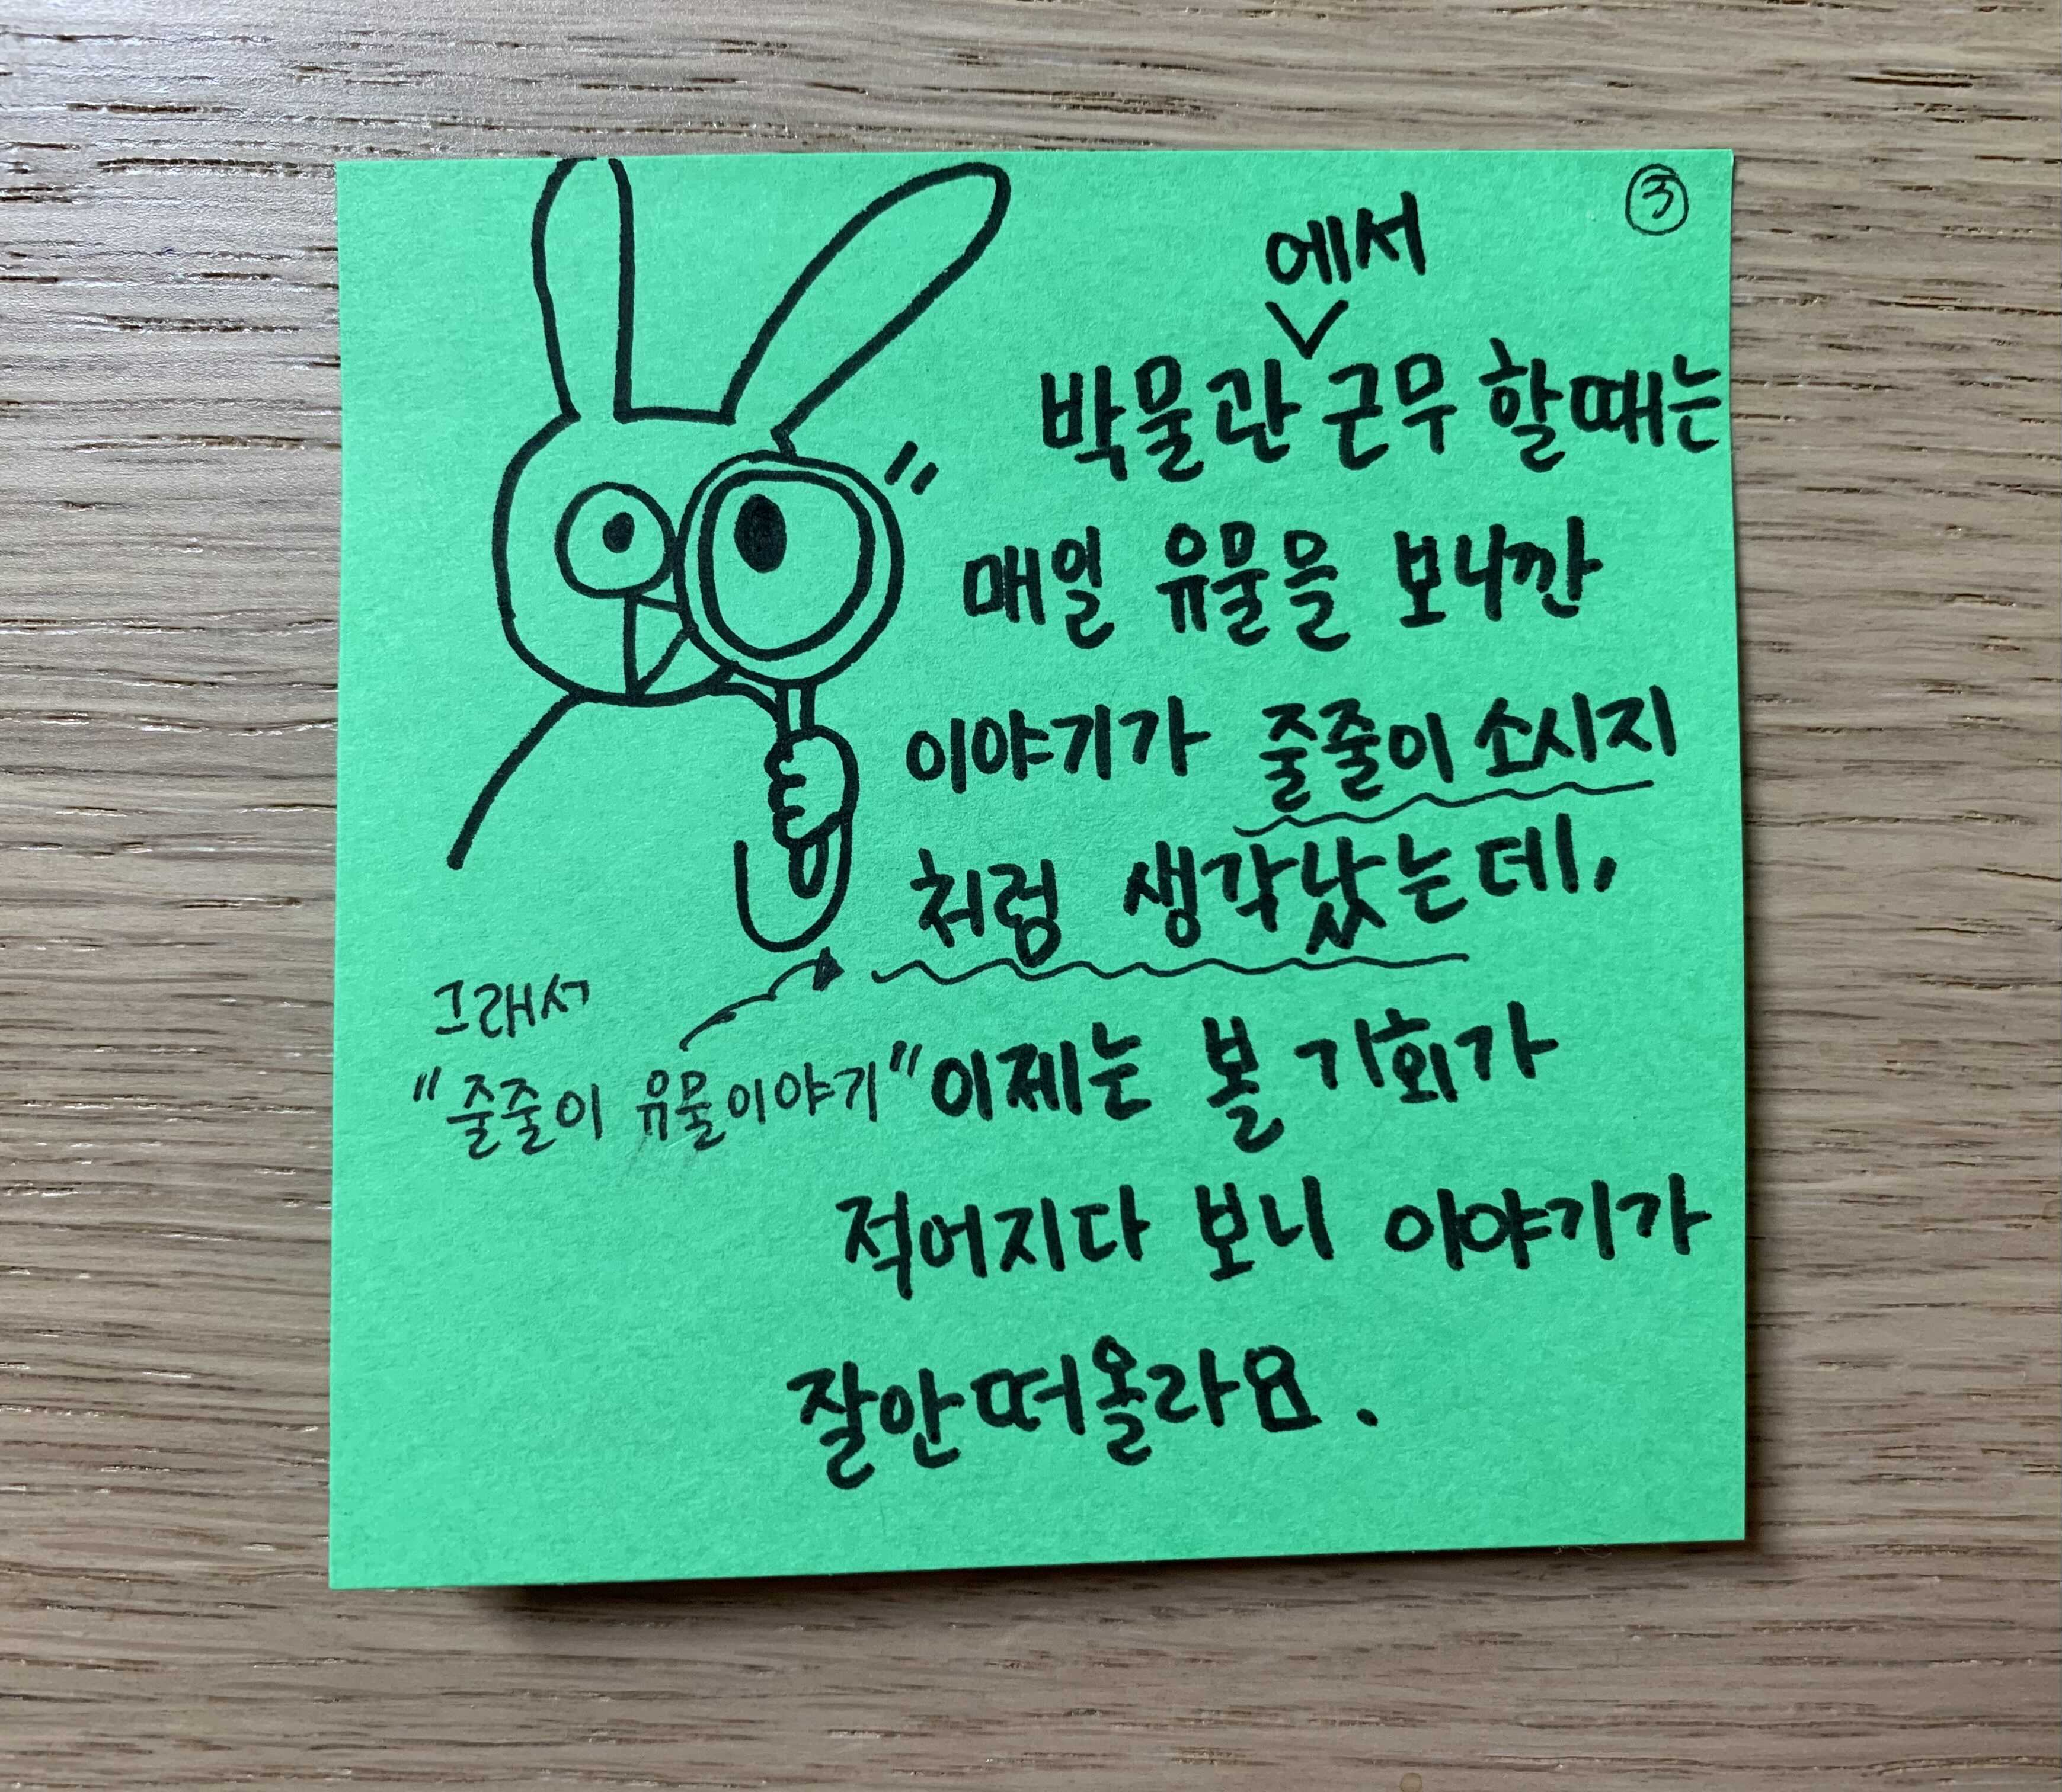 ③
에서
박물관 근무 할때는
매일 유물을 보니깐
이야기가 줄줄이 소시지
처럼 생각났는데,
그래서
"줄줄이 유물이야기"
이제는 볼 기회가
적어지다 보니 이야기가
잘안떠올라요.